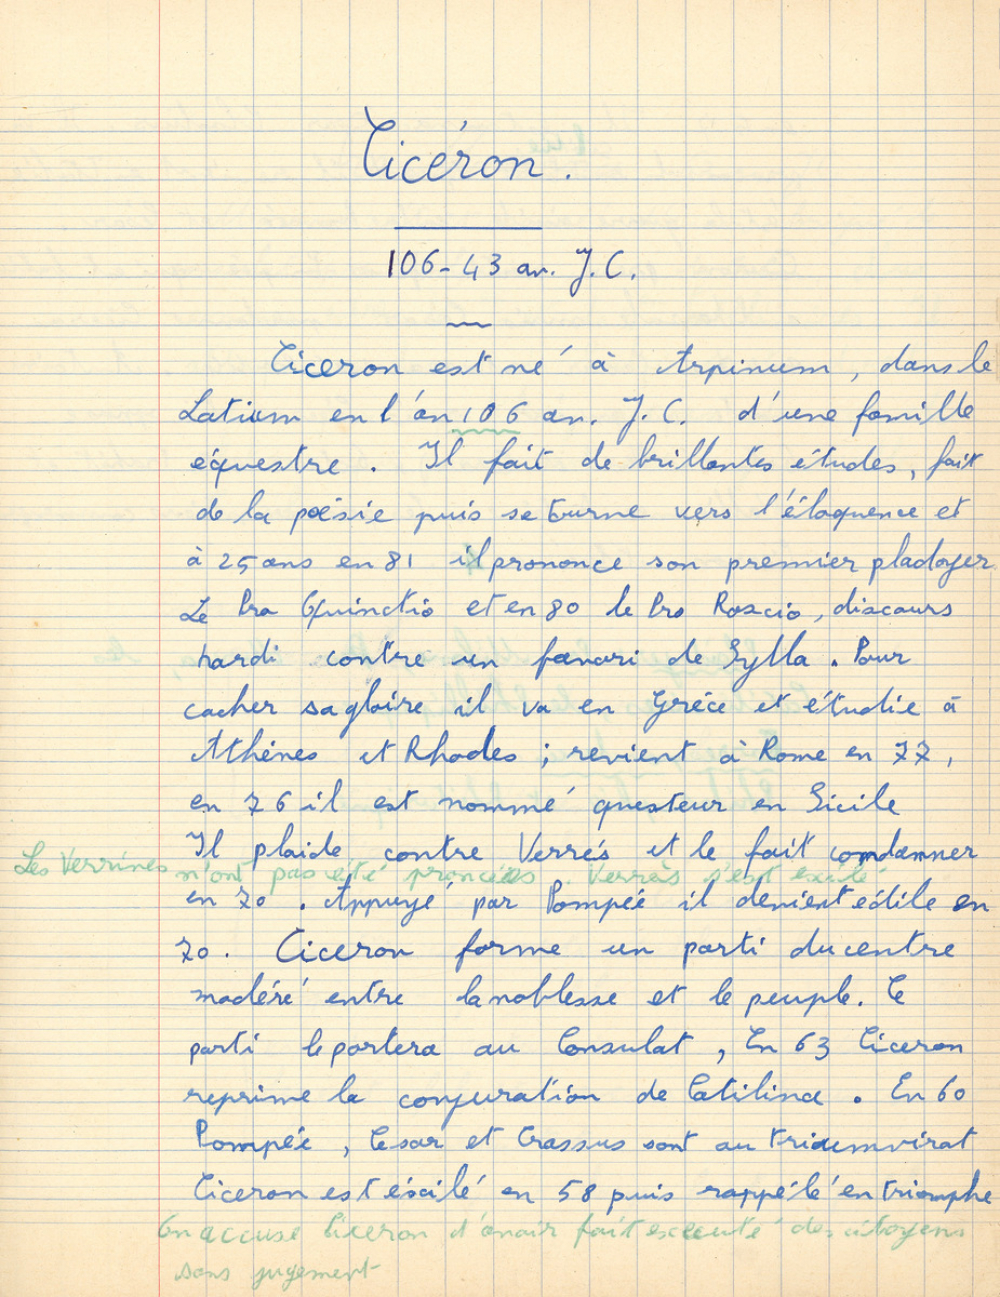 Cicéron.
106-43 av. J.C.
Ciceron est né à Arpinum, dans le
Latium en l'an 106 av. J.C. d'une famille
équestre. Il fait de brillantes études, fait
de la poésie puis se tourne vers l'éloquence et
à 25 ans en 81 il prononce son premier pladoyer
Le Pro Quinctio et en 80 le Pro Roscio, discours
hardi contre un favori de Sylla. Pour
cacher sa gloire il va en Grèce et étudie à
Athènes et Rhodes ; revient à Rome en 77,
en 76 il est nommé questeur en Sicile
Il plaide contre Verrés et le fait condamner
Les Verrines n'ont pas été proncées. Verrès s'est exilé
en 70. Appuyé par Pompée il devient édile en
70. Ciceron forme un parti du centre
modéré entre la noblesse et le peuple. Ce
parti le portera au Consulat, En 63 Ciceron
reprime la conjuration de Catilina. En 60
Pompée, Cesar et Crassus sont au triumvirat
Ciceron est éxilé en 58 puis rappélé en triomphe
On accuse Ciceron d'avoir fait executé des citoyens
sans jugement